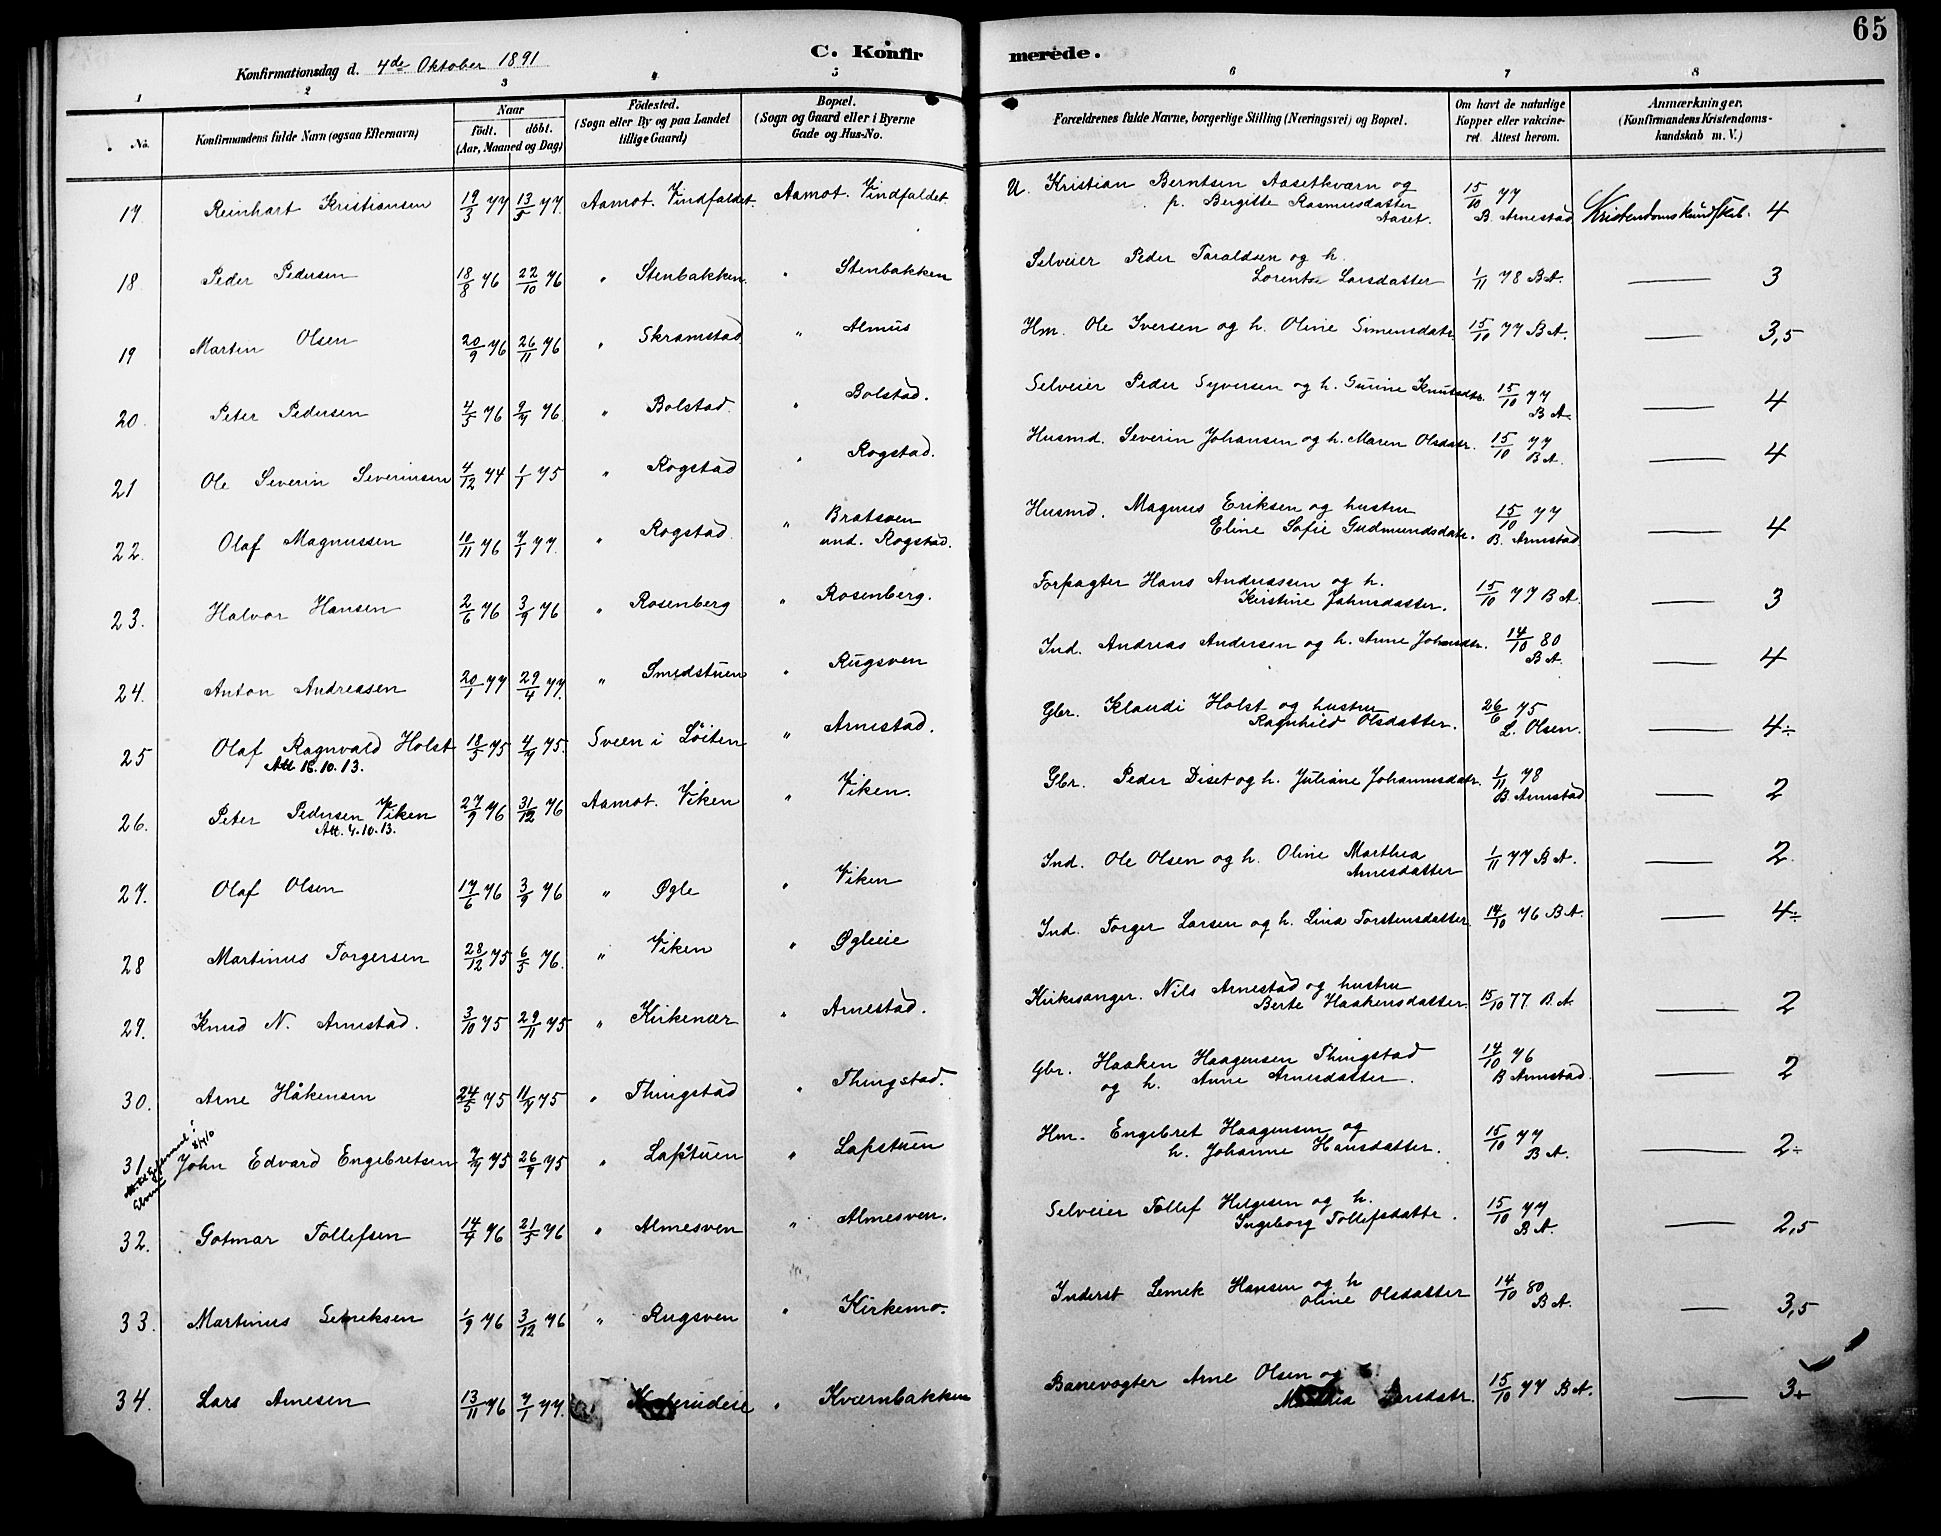 65
Konfirmationsdag d. 4de Oktober 1891
C. Konfirmerede.
1 2 3 4 5 6 7 8
No. Konfirmandens fulde Navn (ogsaa Efternavn) Naar födt. döbt. (Aar, Maaned og Dag) Födested. (Sogn eller By og paa Landet tillige Gaard) Bopæl. (Sogn og Gaard eller i Byerne Gade og Hus-No. Forældrenes fulde Navne, borgerlige Stilling (Næringsvei) og Bopæl. Om havt de naturlige Kopper eller vakcineret. Attest herom. Anmærkninger. (Konfirmandens Kristendomskundskab m. V.)
17. Reinhart Kristiansen 19/3 77 13/5 77. Aamot. Vindfaldet. Aamot. Vindfaldet U. Kristian Berntsen Aasetkværn og 15/10 77
p. Bergitte Rasmusdatter Aaset. B. Arnestad Kristendomskundskab. 4
18. Peder Pedersen 18/8 76 22/10 76 " Stenbakken. " Stenbakken Selveier Peder Taraldsen og h.
Lorentse Larsdatter 1/11 78 B A. — 3
19 Marten Olsen 20/9 76 26/11 76 " Skramstad " Almus Hm. Ole Iversen og h. Oline Simensdatr. 15/10 77 B A. — 3,5
20. Peter Pedersen 4/5 76 9/7 76. " Bolstad. " Bolstad. Selveier Peder Syversen og h. Gunine Knudsdtr. 15/10 77 B A. — 4
21 Ole Severin Severinsen 4/12 74 1/1 75 " Rogstad " Rogstad. Husmd. Severin Johansen og h. Maren Olsdatr. 15/10 77 B A. — 4
22. Olaf Magnussen 10/11 76 7/1 77. " Rogstad. " Bratsven und. Rogstad. Husmd. Magnus Eriksen og hustru
Eline Sofie Gudmundsdatr. 15/10 77 B. Arnestad — 4
23. Halvor Hansen 2/6 76 3/9 76 " Rosenberg " Rosenberg. Forpagter Hans Andreassen og h.
Kirstine Johnsdatter. 15/10 77 B A. — 3
24. Anton Andreasen 20/1 77 29/4 77. " Smedstuen " Rugsven Ind. Andreas Andersen og h. Anne Johnsdtr. 14/10 80 B A. — 4
25 Olaf Ragnvald Holst 18/5 75 4/7 75. Sveen i Löiten " Arnestad. Gbr. Klaudi Holst og hustru
Att. 16.10.13. Ragnhild Olsdatter. 26/6 75 L. Olsen. — 4÷
26. Peter Pedersen Viken 27/9 76 31/12 76 Aamot. Viken " Viken. Gbr. Peder Diset og h. Juliane Johannesdatr. 1/11 78 B. Arnestad — 2
Att. 4.10.13.
27. Olaf Olsen 17/6 76 3/9 76 " Øgle " Viken Ind. Ole Olsen og h. Oline Marthea
Arnesdatter 1/11 77 B A. — 2
28 Martinus Torgersen 28/12 75 6/5 76. " Viken " Øgleeie Ind. Torger Larsen og h. Lina Torstensdatter 14/10 76 B A. — 4÷
29. Knud N. Arnestad. 3/10 75 29/11 75 " Kirkenær " Arnestad. Kirkesanger. Nils Arnestad og hustru
Berte Haakensdatter 15/10 77 B. A — 2
30. Arne Håkensen 24/5 75 11/7 75 " Thingstad " Thingstad. Gbr. Haaken Haagensen Thingstad
og h. Anne Arnesdatter. 14/10 76 B Arnestad. — 2
31. John Edvard Engebretsen 7/7 75 26/9 75 " Lapstuen " Lapstuen Hm. Engebret Haagensen og
h. Johanne Hansdatter. 15/10 77 B A. — 2÷
32. Gotmar Tollefsen 14/4 76 21/5 76 " Almesven " Almesven. Selveier Tollef Helgesen og h.
Ingeborg Tollefsdattr. 15/10 77 B A. — 2,5
33. Martinus Lemeksen 1/9 76 3/12 76 " Rugsven " Kirkemo. Inderst Lemek Hansen og h
Oline Olsdatter 14/10 80 B A. — 3,5
34. Lars Arnesen 13/11 76 7/1 77. " Kværnbakken Banevogter Arne Olsen og
Larsdatr. 15/10 77 B A. — 3+